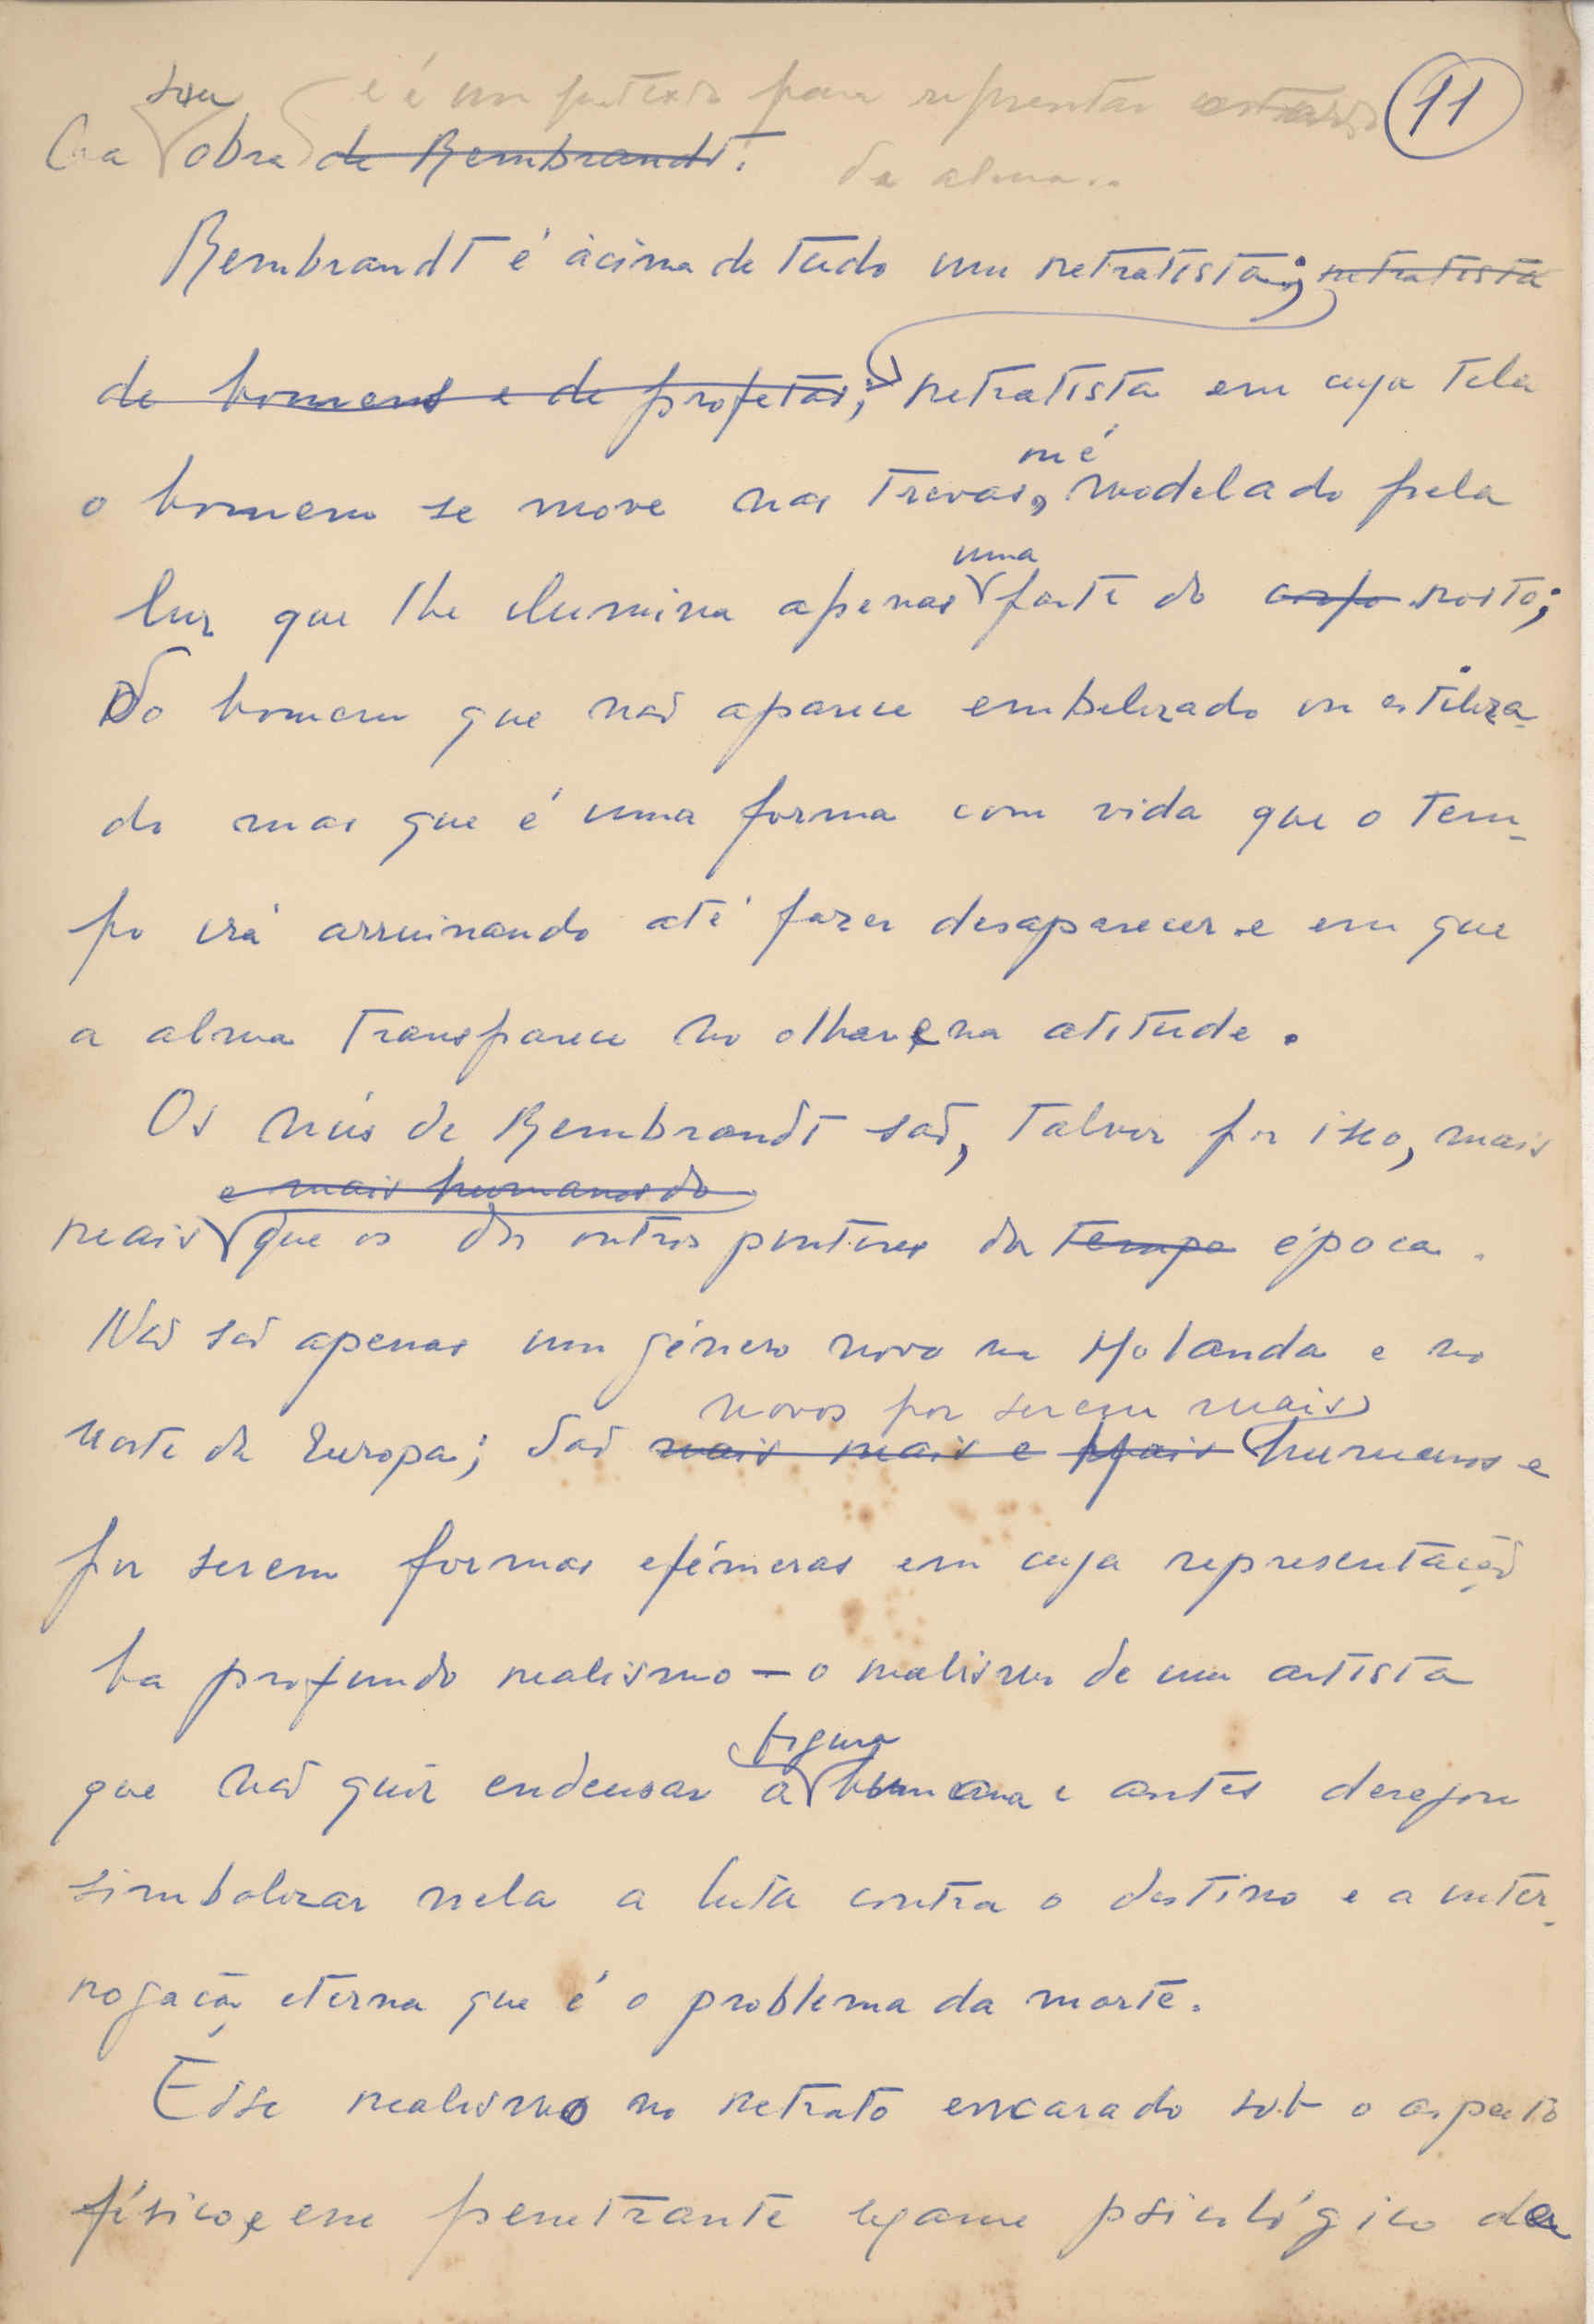 11
sua e é um pretexto para representar estados
na obra de Rembrandt.
da alma..
Rembrandt é àcima de tudo um retratista; retratista
de homens e de profetas; retratista em cuja tela
ou é
o homem se move nas trevas, modelado pela
uma
luz que lhe ilumina apenas parte do corpo rosto;
Do homem que não aparece embelezado ou estiliza-
do mas que é uma forma com vida que o tem-
po irá arruinando até fazer desaparecer e em que
a alma transparece no olhar e na atitude.
Os nús de Rembrandt são, talvez por isso, mais
e mais humanos do
reais que os dos outros pintores da tempo época.
Não são apenas um género novo na Holanda e no
novos por serem mais
Norte da Europa; são mais reais e mais humanos e
por serem formas efémeras em cuja representação
ha profundo realismo — o realismo de um artista
figura
que não quiz endeusar a humana e antes desejou
simbolizar nela a luta contra o destino e a inter-
rogação eterna que é o problema da morte.
Êsse realismo no retrato encarado sob o aspecto
físico, e em penetrante exame psicológico da